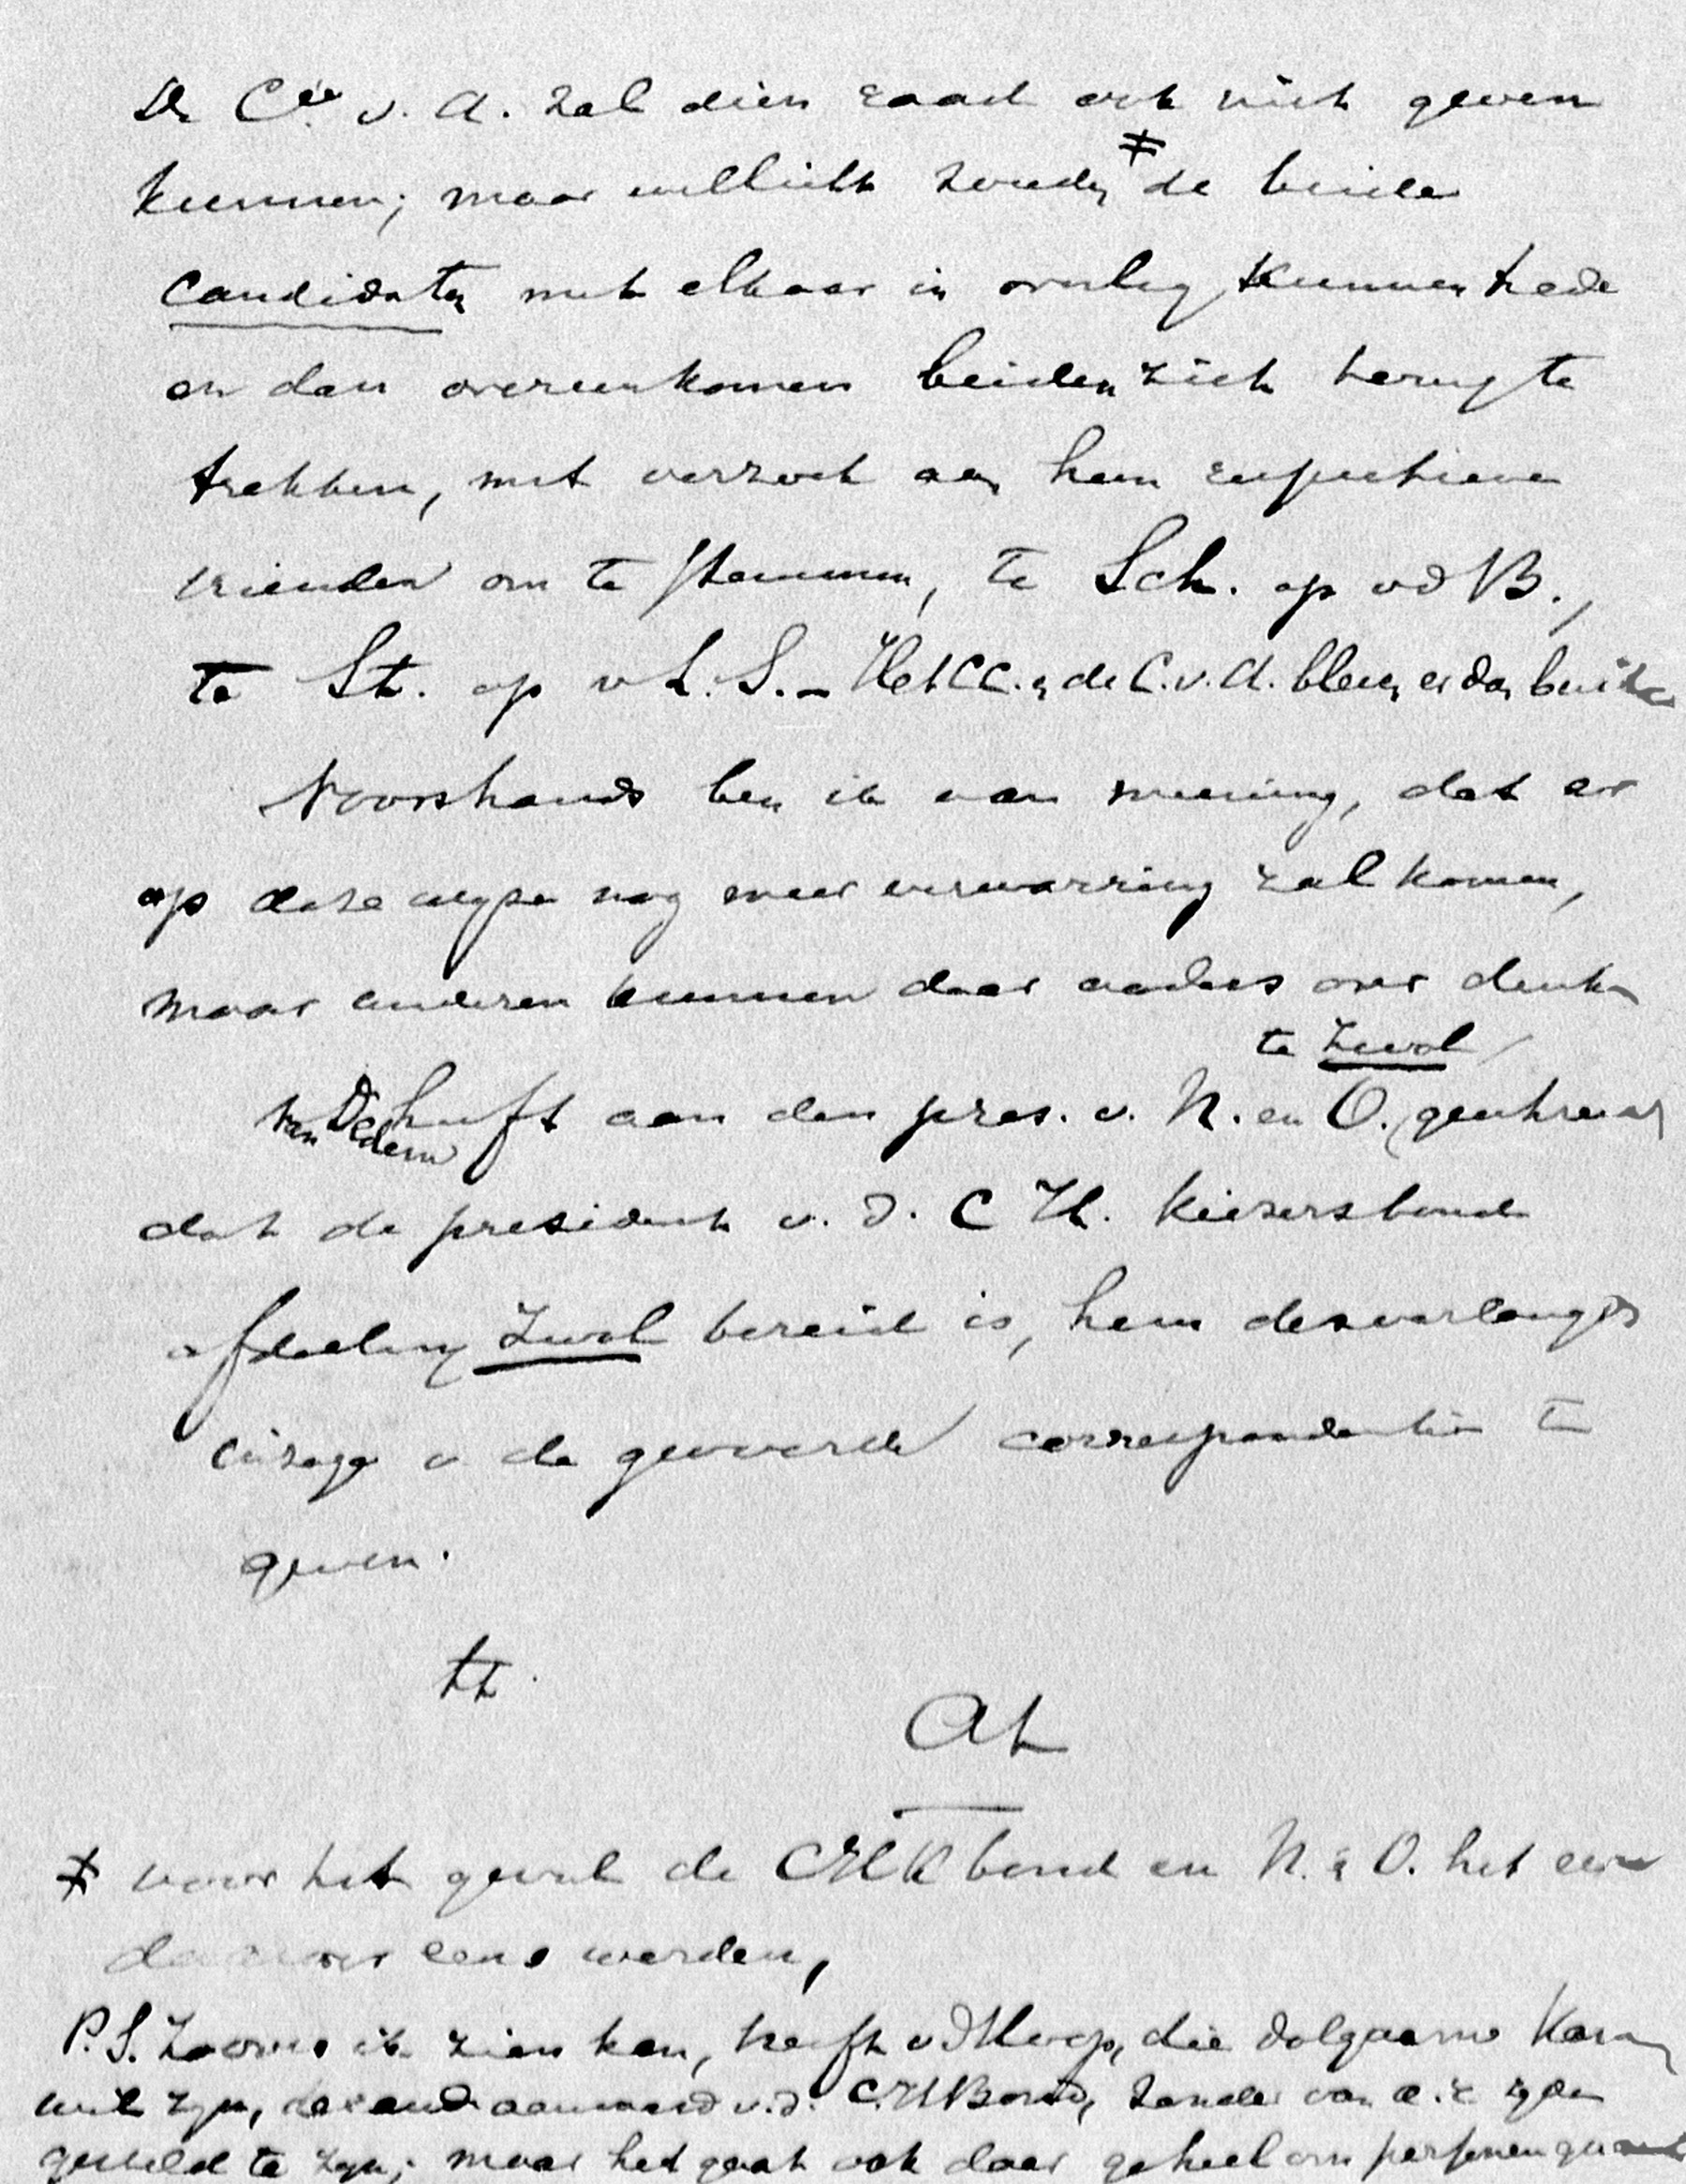 De C.ie v. A. zal dien raad ook niet geven
kunnen; maar wellicht zouden ≠ de beide
candidaten met elkaar in overleg kunnen trede
en dan overeenkomen beiden zich terug te
trekken, met verzoek aan hun respectieve
vrienden om te stemmen, te Sch. op vd B.,
te St. op v L. S. – Het CC. en de C. v. A. bleven er dan buiten
Voorshands ben ik van meening, dat er
op deze wijze nog meer verwarring zal komen,
maar anderen kunnen daar anders over denken
te Zwol
van Dedem heeft aan den pres. v. N. en O. geschreven
dat de president v. d. C H. Kiezersbond
afdeeling Zwol bereid is, hem desverlangd
inzage v. de gevoerde correspondentie te
geven.
tt.
AL
≠ voor het geval de CHK bond en N. & O. het
daarover eens werden,
P.S. Zoover ik zien kan, heeft vd Hoop, die dolgaarne Kam
wil zijn, aanvaard v.d. C.H Bond, zonder van a.r. zijde
gesteld te zijn; maar het gaat ook daar geheel om personen